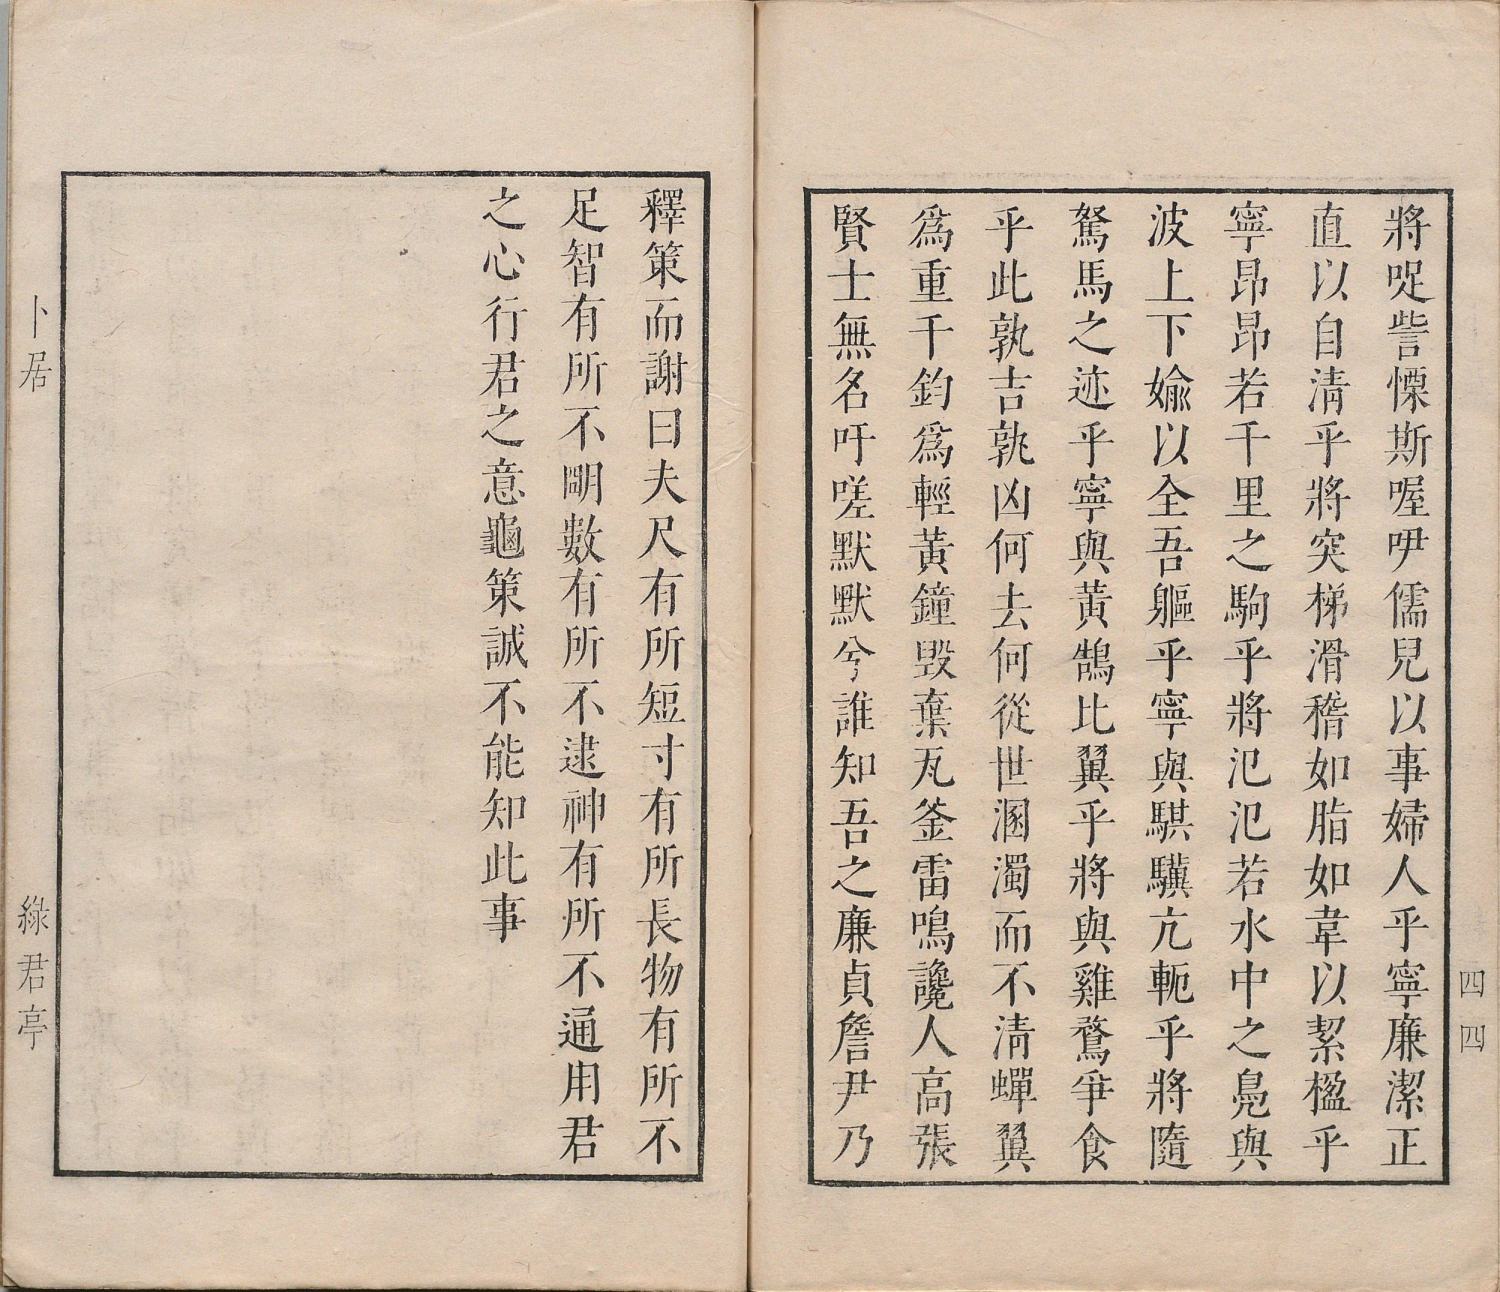 將哫訾慄斯喔吚儒兒以事婦人乎寧廉潔正
直以自淸乎將突梯滑稽如脂如韋以絜楹乎
寧昂昂若千里之駒乎將氾氾若水中之鳧與
波上下媮以全吾軀乎寧與騏驥亢軛乎將隨
駑馬之迹乎寧與黃鵠比翼乎將與雞鶩爭食
乎此孰吉孰凶何去何從世溷濁而不淸蟬翼
爲重千鈞爲輕黃鐘毀棄瓦釜雷鳴讒人高張
賢士無名吁嗟默默兮誰知吾之廉貞詹尹乃
四四
釋策而謝曰夫尺有所短寸有所長物有所不
足智有所不明數有所不逮神有所不通用君
之心行君之意龜策誠不能知此事
卜居
綠君亭